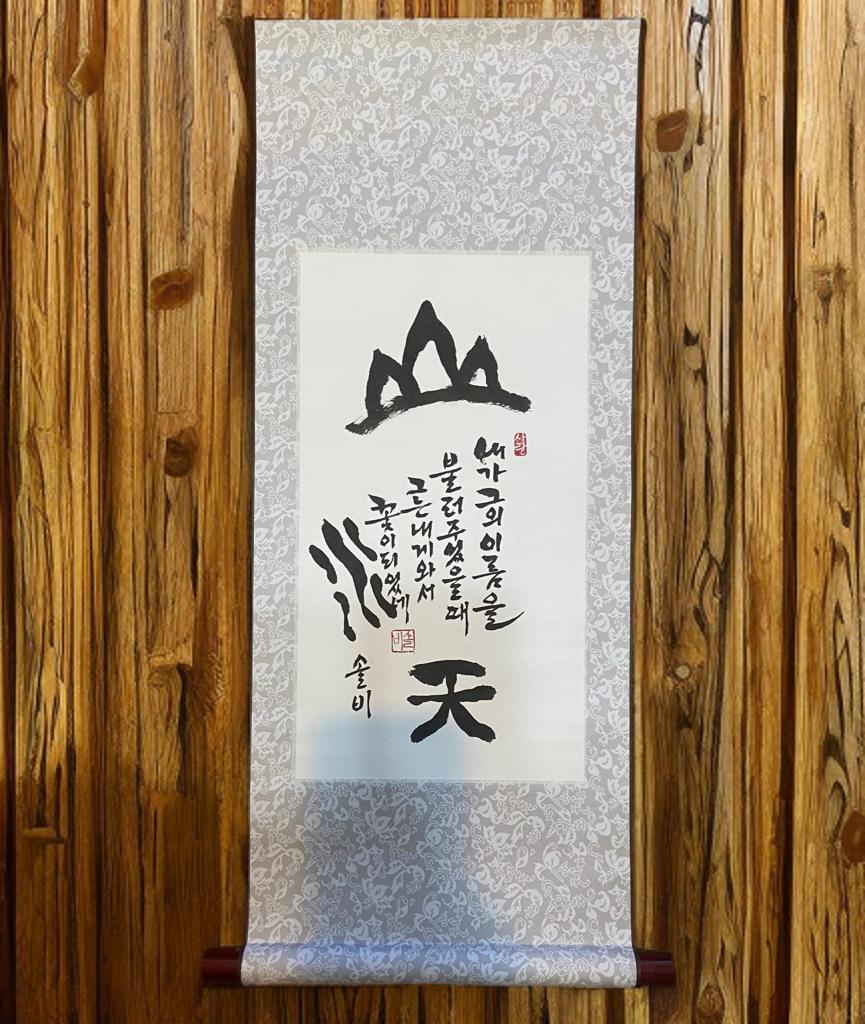 山
내가 그의 이름을
불러주었을 때
그는 내게 와서
꽃이 되었네
水
솔비
솔비
天